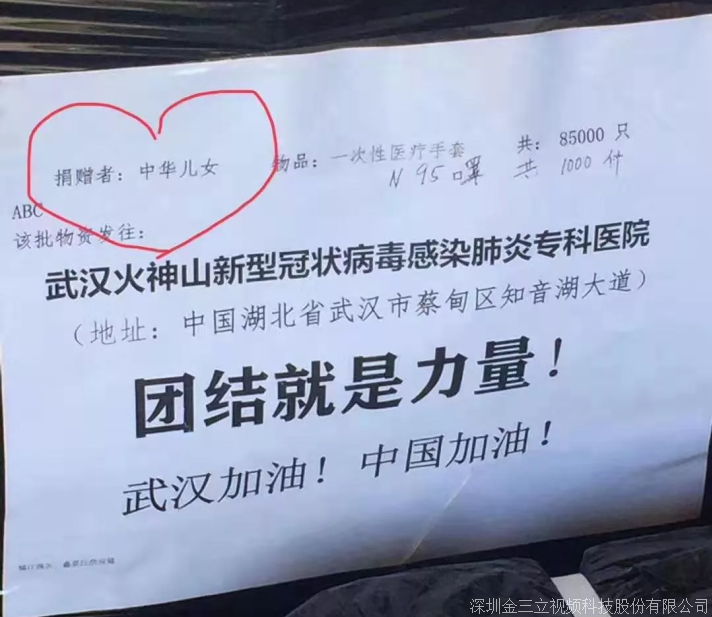 捐赠者：中华儿女 物品：一次性医疗手套 共：85000 只
N95口罩 共 1000 件
ABC
该批物资发往：
武汉火神山新型冠状病毒感染肺炎专科医院
（地址：中国湖北省武汉市蔡甸区知音湖大道）
团结就是力量！
武汉加油！中国加油！
深圳金三立视频科技股份有限公司